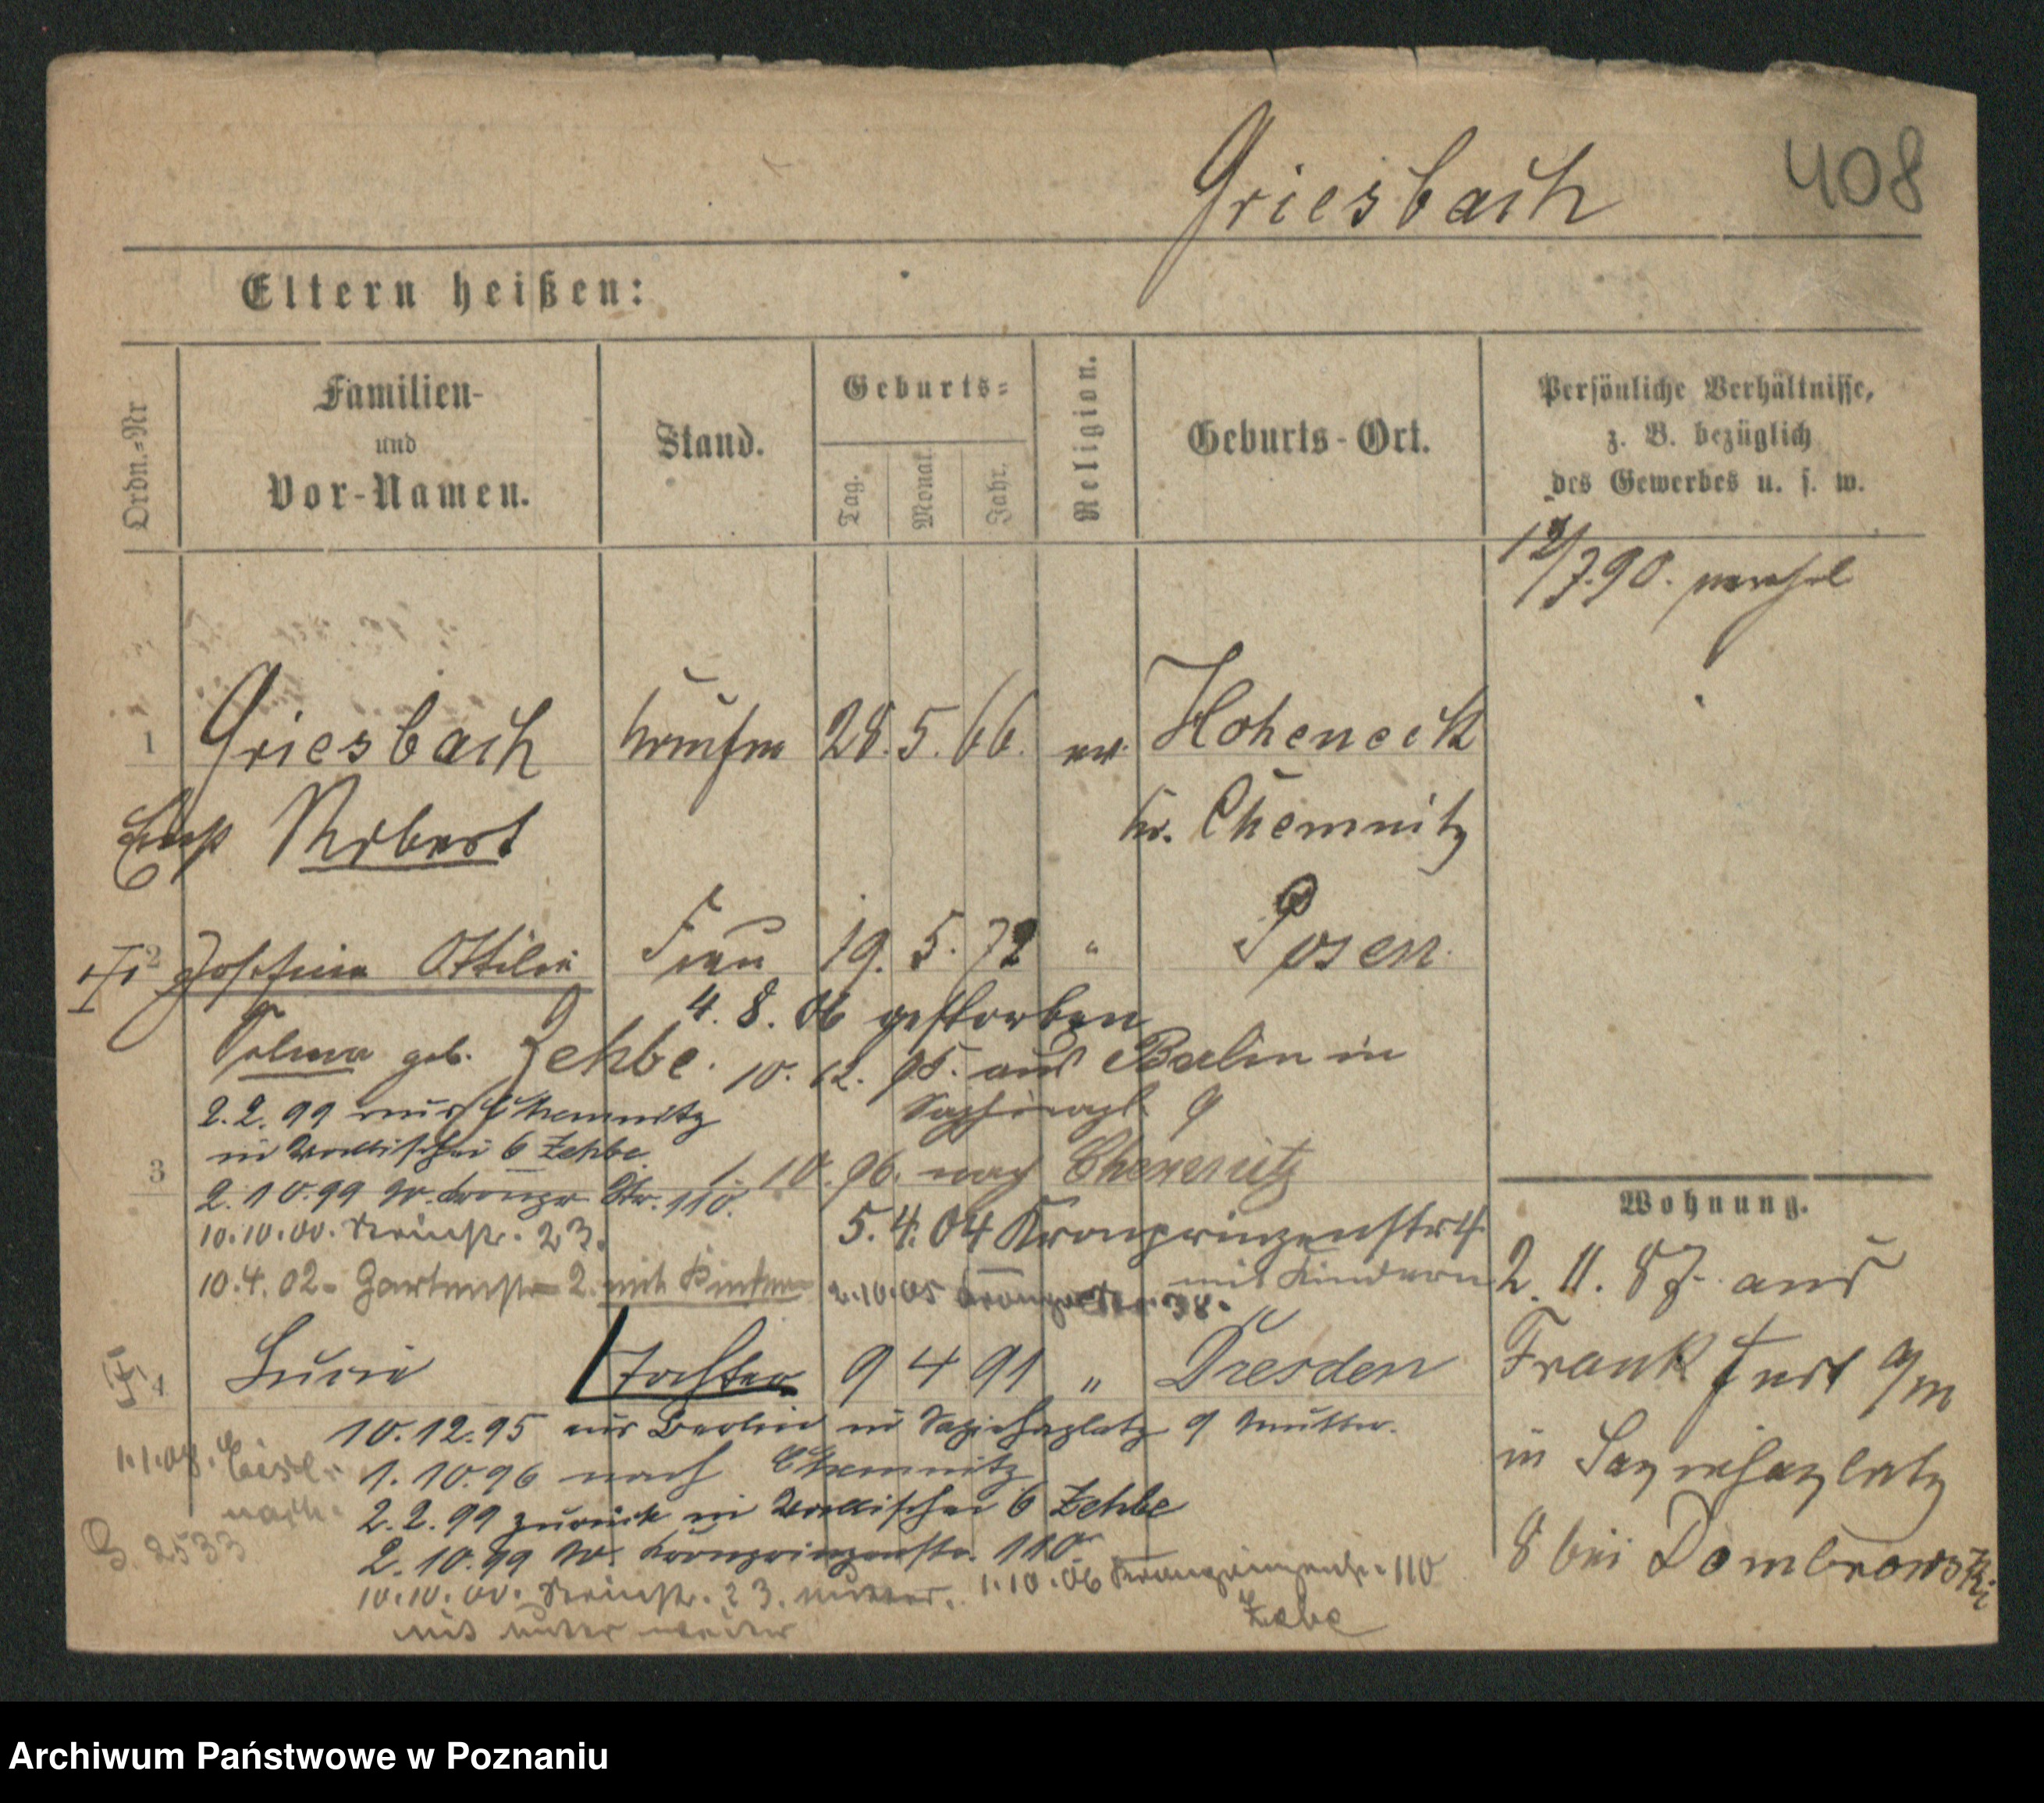 Griesbach 408
Eltern heißen:
Ordn.=Nr
Familien-
und
Vor-Namen.
Stand.
Geburts=
Tag.
Monat.
Jahr.
Religion.
Geburts-Ort.
Persönliche Verhältnisse,
z. B. bezüglich
des Gewerbes u. s. w.
/7.90.
1 Griesbach Kaufm 28. 5. 66. ev. Hoheneck
Robert Kr. Chemnitz
2 Ottilie Frau 19. 5. 72 " Posen
4. 8. 06 gestorben
Selma geb. Zehbe. 10. 12. 95. aus Berlin in
Sapiehapl. 9
2. 2. 99 aus Chemnitz
in Wallischei 6 Zehbe
3
1. 10. 96. nach Chemnitz
2. 10. 99 Str. 110.
10. 10. 00. 23.
5. 4. 04 Kronprinzenstr
10. 4. 02. Gartenstr 2. mit Kindern
mit Kindern
2. 10. 05 38.
Wohnung.
2. 11. 87. aus
Frankfurt a/m
in Sapiehaplatz
8 bei Dombrowski
4 Lucie Tochter 9 4 91 " Dresden
10. 12. 95 aus Berlin in Sapiehaplatz 9 Mutter.
1. 10. 96 nach Chemnitz
2. 2. 99 zurück in Wallischei 6 Zehbe
2. 10. 99 Kronprinzenstr. 110
10. 10. 00. 23. 1. 10. 06 Kronprinzenstr. 110
Zebe
mit Mutter weiter
1. 1. 08.
2533
Archiwum Państwowe w Poznaniu